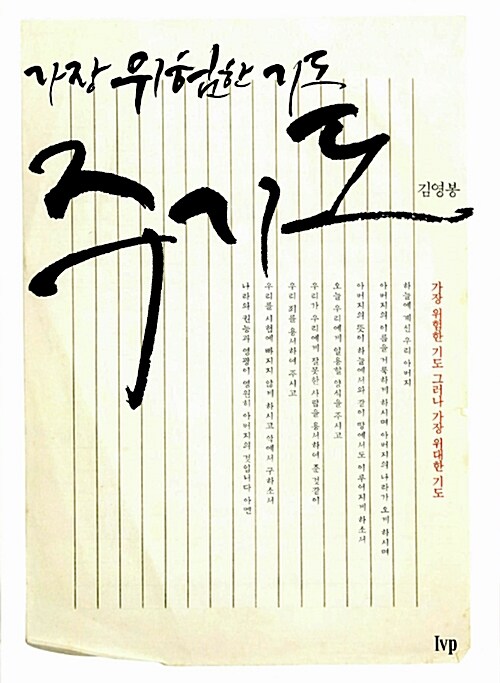 가장 위험한 기도
주기도
김영봉
가장 위험한 기도 그러나 가장 위대한 기도
하늘에 계신 우리 아버지
아버지의 이름을 거룩하게 하시며 아버지의 나라가 오게 하시며
아버지의 뜻이 하늘에서와 같이 땅에서도 이루어지게 하소서
오늘 우리에게 일용할 양식을 주시고
우리가 우리에게 잘못한 사람을 용서하여 준 것같이
우리 죄를 용서하여 주시고
우리를 시험에 빠지지 않게 하시고 악에서 구하소서
나라와 권능과 영광이 영원히 아버지의 것입니다 아멘
Ivp